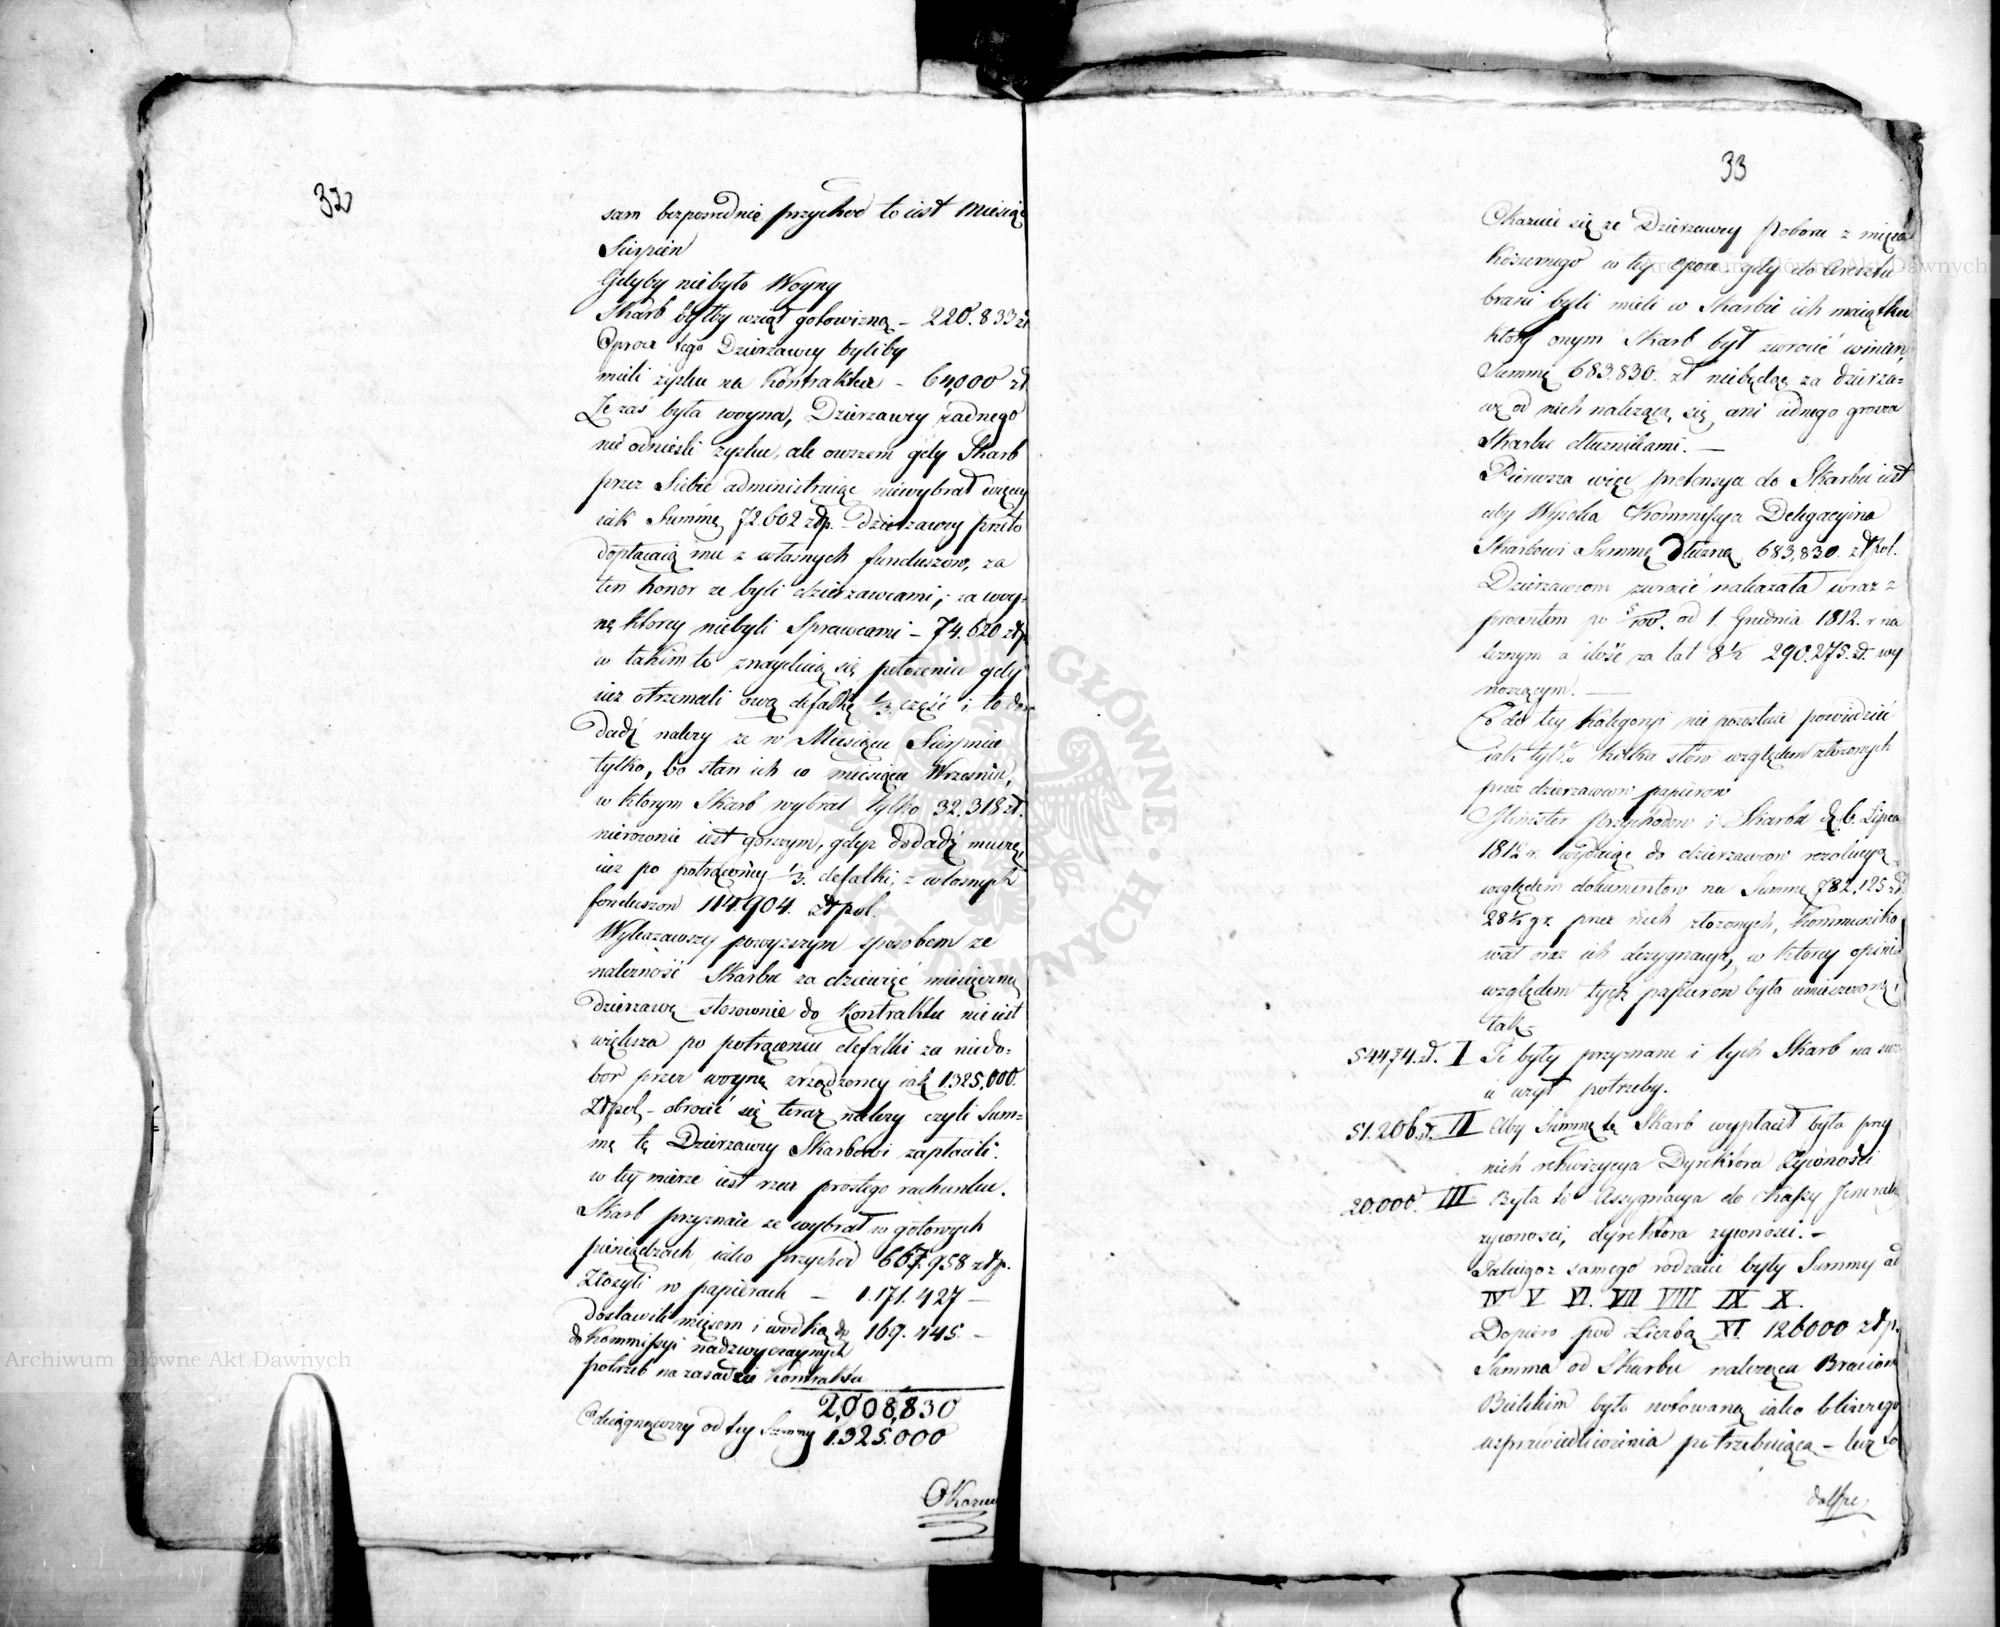 32
sam bezposrednie przychod to iest Miesiąc
Sierpień
Gdyby niebyło Woyny
Skarb byłby wziął gotowizną – 220.833 zł
Oprocz tego Dzierzawcy byliby
mieli zysku na Kontraktu – 64,000 zł
Ze zaś była woyna, Dzierzawcy żadnego
nie odnieśli zysku, ale owszem gdy Skarb
przez Siebie administruiąc niewybrał więcey
iak Summę 72.602 złp. – dzierzawcy przeto
dopłacaią mu z własnych funduszow, za
ten honor ze byli dzierzawcami, za woy-
nę ktorey niebyli Sprawcami – 74.620 złp
w takim to znayduią się położeniu gdy
iuz otrzymali ową defalkę 1/3 część i to do-
dadź nalezy ze w Miesiącu Sierpniu
tylko, bo stan ich w miesiącu Wrześniu,
w ktorym Skarb wybrał tylko 32.318 zł.
nierownie iest gorszym, gdyz dodadź muszę,
iuz po potrąconey 1/3 defalki, z własnych
funduszow 114.904. zł pol.
Wykazawszy powyzszym sposobem ze
nalezność Skarbu za dziewięć miesięczną
dzierzawę stosownie do Kontraktu nie iest
większa po potrąceniu defalki za niedo-
bor przez woynę zrządzoney iak 1.325.000.
Zł pol. – obrocić się teraz nalezy czyli Sum-
mę tę Dzierzawcy Skarbowi zapłacili.
w tey mierze iest rzecz prostego rachunku.
Skarb przyznaie ze wybrał w gotowych
pieniądzach iako przychod 667.958 złp.
Złozyli w papierach – 1.171.427 –
dostawili mięsem i wodką do 169.445 –
do Kommissyi nadzwyczaynych
potrzeb na zasadzie Kontraktu
2,008,830
Odciągnąwszy od tey Summy 1.325.000
Okazuie
33
Okazuie się ze Dzierzawcy poboru z mięsa
Koszernego w tey epoce gdy do Aresztu
brani byli mieli w Skarbie ich maiątku
ktory onym Skarb był zwrocić winien,
Summę 683.830. zł niebędąc za dzierza-
wę od nich nalezącą się, ani iednego grosza
Skarbu dłuznikami. –
Pierwsza więc pretensya do Skarbu iest
aby Wysoka Kommissya Delegacyina
Skarbowi Summę dłuzną 683,830. zł Pol.
Dzierzawcom zwrocić nakazała wraz z
procentem po 5/100. od 1. Grudnia 1812. r na
leznym a ilość za lat 8½ 290.275. zł. wy
noszącym. –
Co do tey Kategoryi nie pozostaie powiedzieć
iak tylko kilka słow względem złozonych
przez dzierzawcow papierow
Minister przychodow i Skarbu d. 6. Lipca
1812 r. wydaiąc do dzierzawcow rezolucyą
względem dokumentow na Summę 782,125 zł
28½ gr. przez nich złozonych, Kommuniko
wał oraz ich dezygnacyą, w ktorey opinia
względem tych papierow była umieszczoną,
tak
54474. zł. I Te były przyznane i tych Skarb na swo-
ie uzył potrzeby.
51.206. zł. II Aby Summę tę Skarb wypłacił była przy
nich rekwizycya Dyrektora zywności
20.000. III Była to Assygnacya do Kassy Jeneralney
zywnosci, dyrektora zywnosci. –
Takiegoz samego rodzaiu były Summy ad
IV V VI. VII VIII IX X.
Dopiero pod Liczbą XI 126000 złp.
Summa od Skarbu naleząca Braciom
Bielskim była notowaną iako blizszego
usprawiedliwienia potrzebuiąca – lecz to